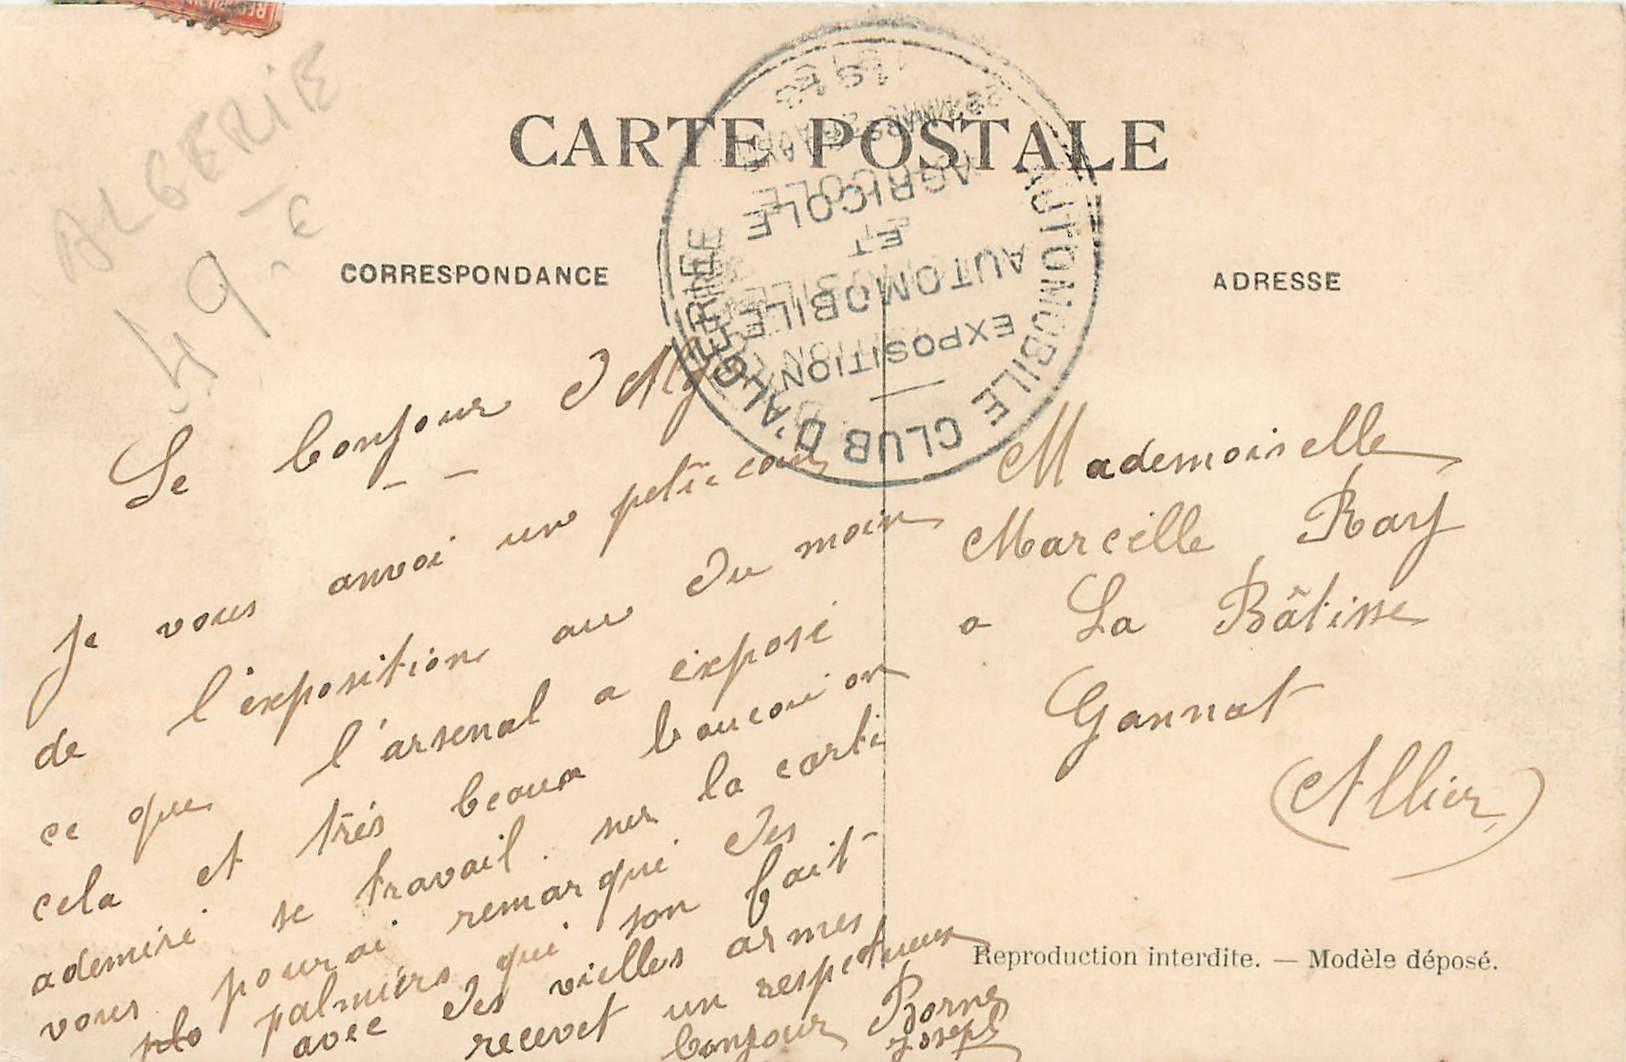 ALGERIE
49.-€
CARTE POSTALE
AUTOMOBILE CLUB D'ALGERIE
EXPOSITION
AUTOMOBILE
ET
AGRICOLE
CORRESPONDANCE
ADRESSE
Le bonjour d'Alg
Je vous anvoi un petit coin
de l'exposition au du moin
ce que l'arsenal a exposé
cela et très beaux baucoui on
ademiré se travail sur la carte
vous pourai remarqué des
palmiérs qui son fait
avec des vielles armes
recevet un respectueux
bonjour Borne
Joseph
Mademoiselle
Marcelle Ray
a La Bâtisse
Gannat
(Allier)
Reproduction interdite. — Modèle déposé.